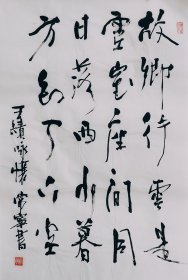 故鄉行雲是
虛室座間同
日落西山暮
方知天下空
王績詠懷
書